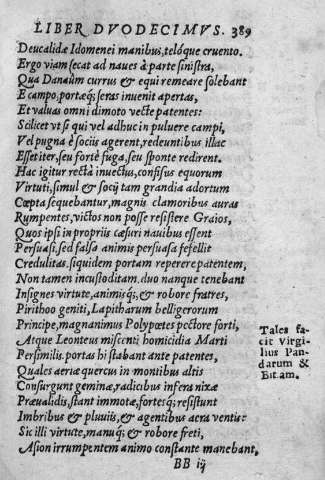 LIBER DVODECIMVS. 389
Deucalidæ Idomenei manibus, telóque cruento.
Ergo viam secat ad naues à parte sinistra,
Qua Danaûm currus & equi remeare solebant
E campo, portasq́; seras inuenit apertas,
Et valuas omni dimoto vecte patentes:
Scilicet vt si qui vel adhuc in puluere campi,
Vel pugna è socijs agerent, redeuntibus illac
Esset iter, seu forte fuga, seu sponte redirent.
Hac igitur rectà inuectus, confisus equorum
Virtuti, simul & socij tam grandia adortum
Cœpta sequebantur, magnis clamoribus auras
Rumpentes, victos non posse resistere Graios,
Quos ipsi in proprijs cæsuri nauibus essent
Persuasi, sed falsa animis persuasa fefellit
Credulitas. siquidem portam reperere patentem,
Non tamen incustoditam. duo nanque tenebant
Insignes virtute, animisq́;, & robore fratres,
Pirithoo geniti, Lapitharum belligerorum
Principe, magnanimus Polypœtes pectore forti,
Atque Leonteus miscenti homicidia Marti
Persimilis. portas hi stabant ante patentes,
Quales aeriæ quercus in montibus altis
Consurgunt geminæ, radicibus infera nixæ
Præualidis, stant immotæ, fortesq́; resistunt
Imbribus & pluuijs, & agentibus aera ventis:
Sic illi virtute, manuq́; & robore freti,
Asion irrumpentem animo constante manebant.
Tales fa-
cit Virgi-
lius Pan-
darum &
Bitiam.
BB iij